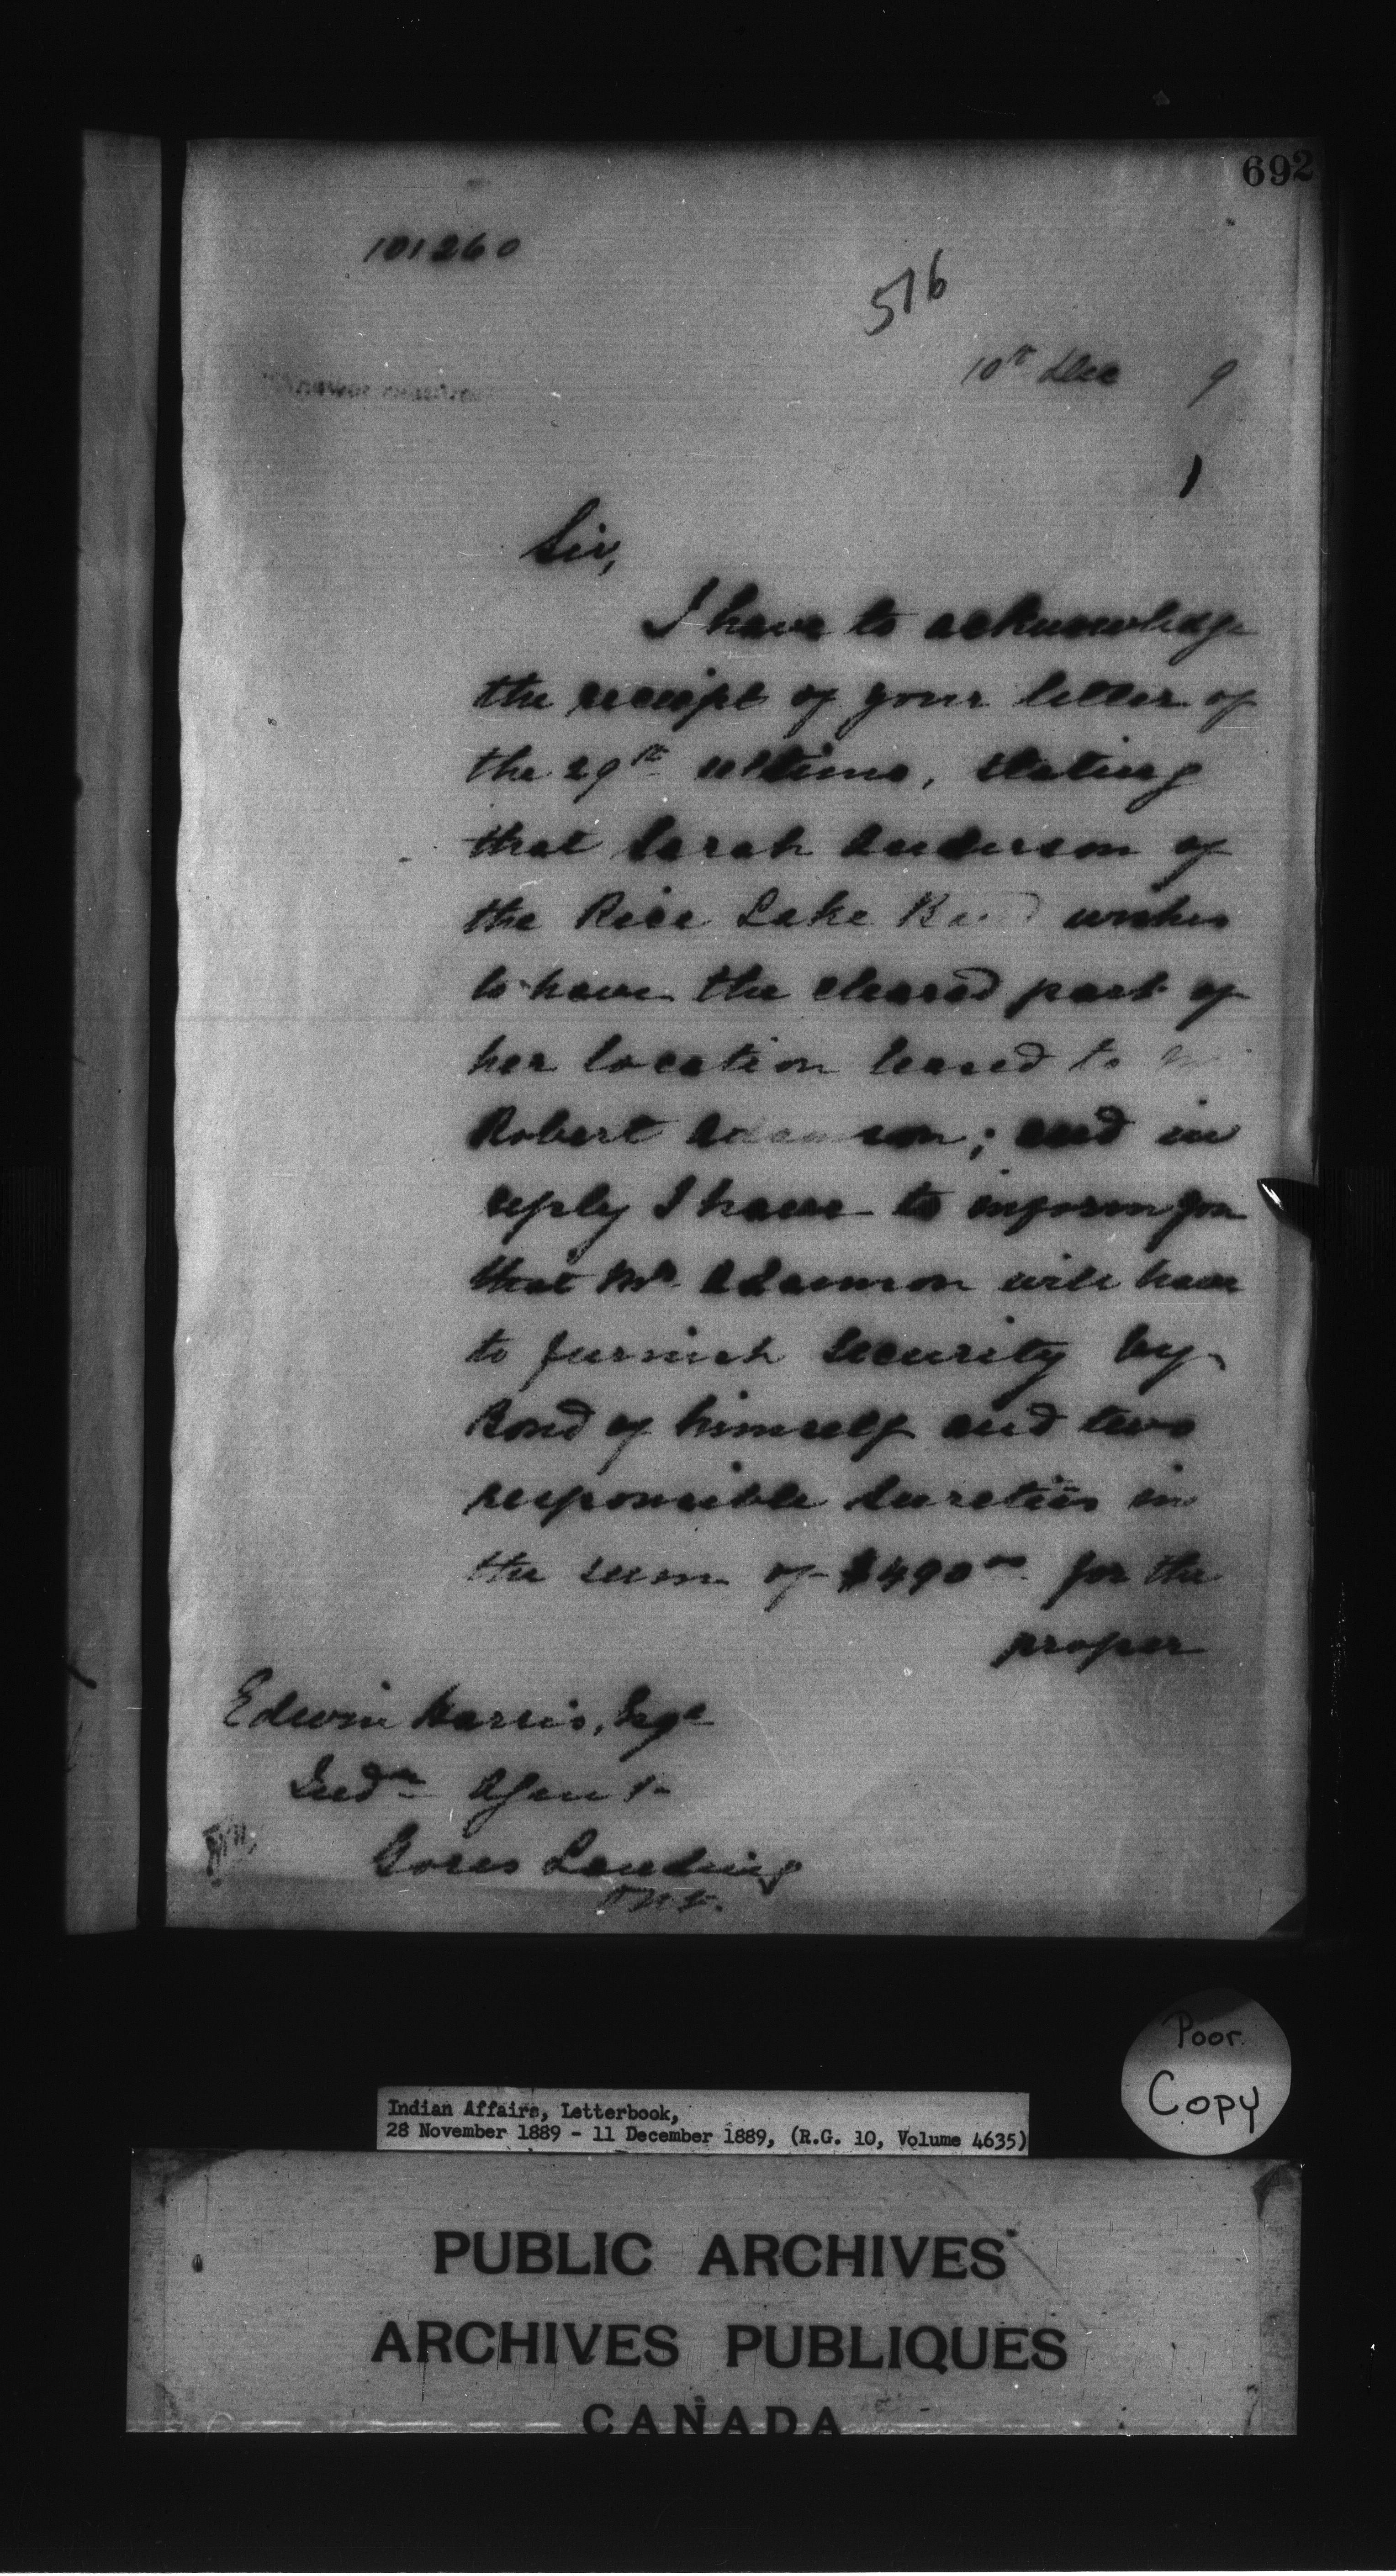 692
101260
516
10th Dec 9
Sir,
I have to acknowledge
the receipt of your letter of
the 29th ultimo, stating
that Sarah Anderson of
the Rice Lake Band wishes
to have the cleared part of
her location leased to
Robert Adamson; and in
reply I have to inform you
that Mr Adamson will have
to furnish security by
Bond of himself and two
responsible sureties in
the sum of $490.00 for the
proper
Edwin Harris, Esqe
Indn Agent
Gores Landing
Ont.
Poor
Copy
Indian Affairs, Letterbook,
28 November 1889 - 11 December 1889, (R.G. 10, Volume 4635)
PUBLIC ARCHIVES
ARCHIVES PUBLIQUES
CANADA